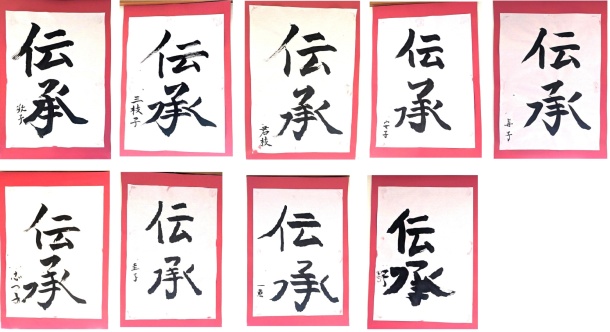 伝承
三枝子
伝承
君枝
伝承
伝承
伝承
伝承
伝承
伝承
伝承